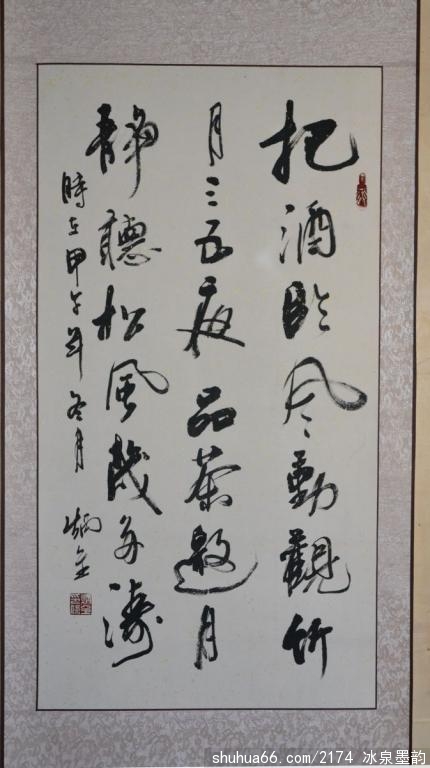 把酒临风動觀竹
月三五夜品茶邀月
静聽松風幾多濤
時在甲午年冬月
shuhua66.com/2174 冰泉墨韵